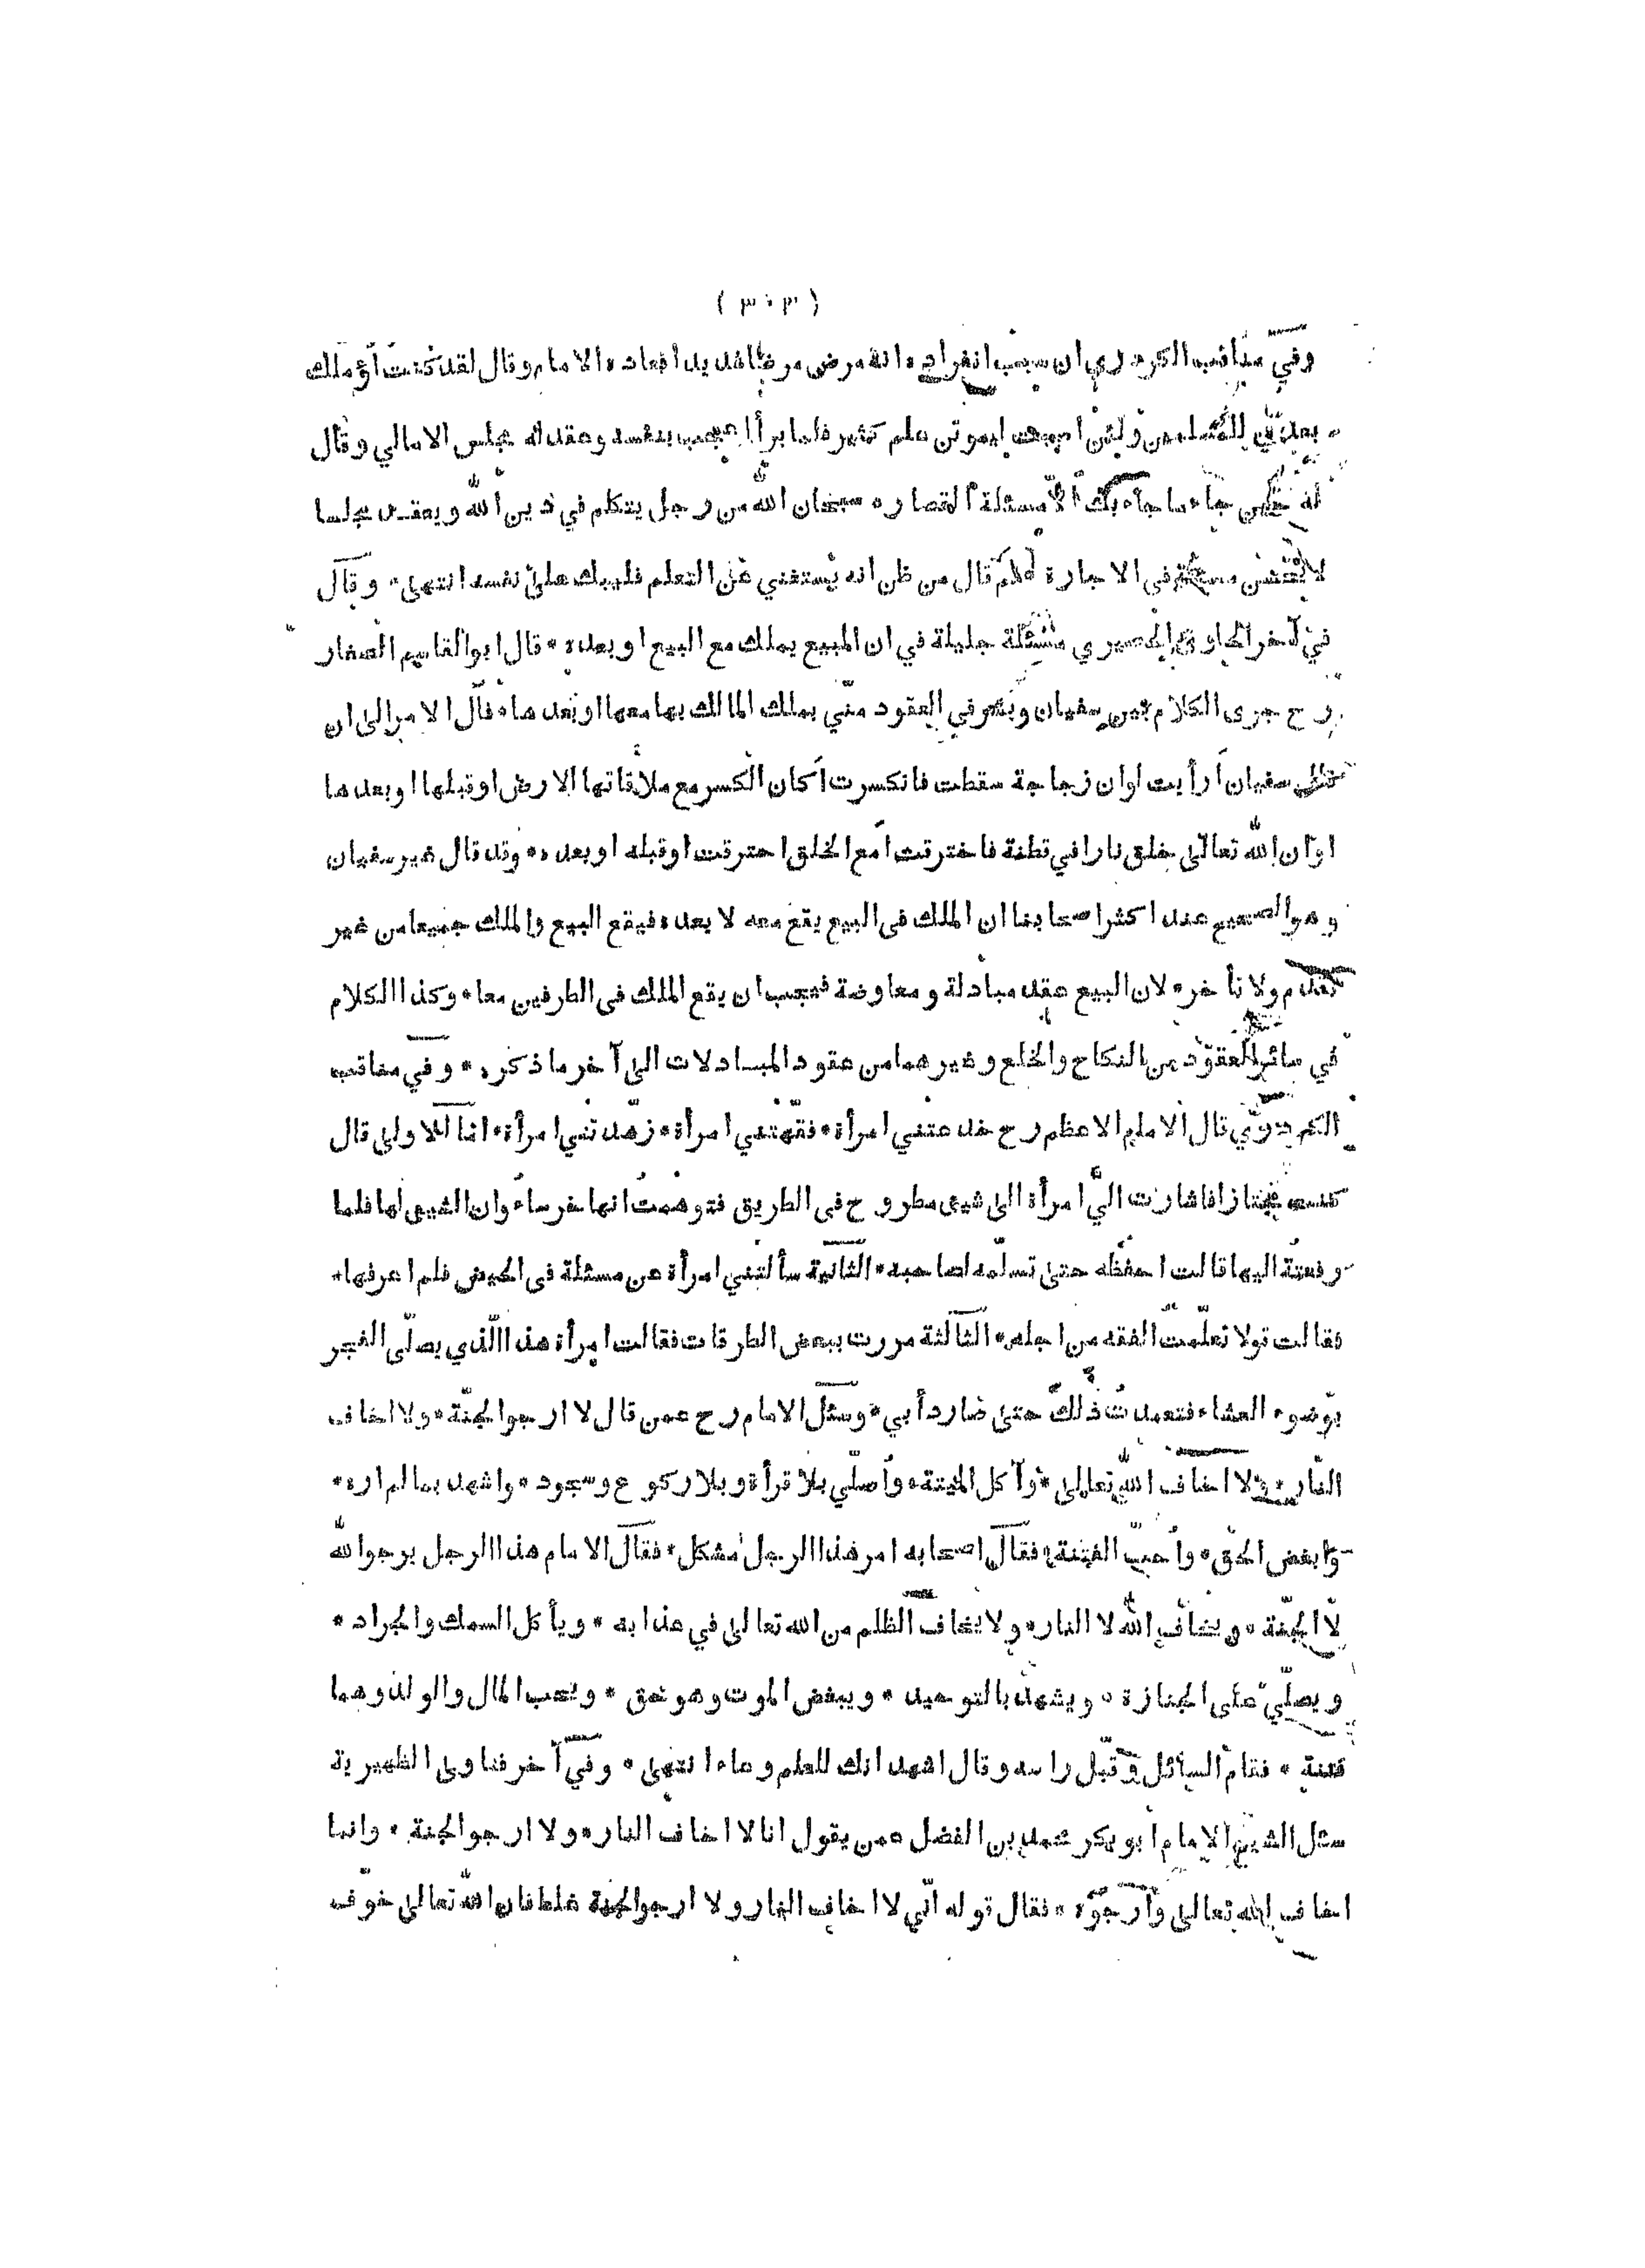 ( ٣٠٣ )
وفي مناقب الكردري ان سبب انفراده انه مرض مرضا شديدا فعاده الامام وقال لقد كنت أؤملك
بعدي للمسلمين ولئن اصبت ليموتن علم كثير فلما برأ اعجب بنفسه وعقد له مجلس الامالي وقال
له حين جاء ما جاء بك الا مسئلة القصار * سبحان الله من رجل يتكلم في دين الله ويعقد مجلسا
لا يحسن مسئلة في الاجارة ثم قال من ظن انه يستغني عن التعلم فليبك على نفسه انتهى * وقال
في آخر الحاوي الحصيري مسئلة جليلة في ان المبيع يملك مع البيع او بعده * قال ابو القاسم الصفار
رح جرى الكلام بين سفيان وبشر في العقود متى يملك المالك بها معها او بعدها * فآل الامر الى ان
قال سفيان أرأيت لو ان زجاجة سقطت فانكسرت أكان الكسر مع ملاقاتها الارض او قبلها او بعدها
او ان الله تعالى خلق نارا في قطنة فاحترقت أمع الخلق احترقت او قبله او بعده * وقد قال غير سفيان
وهو الصحيح عند اكثر اصحابنا ان الملك في البيع يقع معه لا بعده فيقع البيع والملك جميعا من غير
تقدم ولا تأخر * لان البيع عقد مبادلة ومعاوضة فيجب ان يقع الملك في الطرفين معا * وكذا الكلام
في سائر العقود من النكاح والخلع وغيرهما من عقود المبادلات الى آخر ما ذكره * وفي مناقب
الكردري قال الامام الاعظم رح خدعتني امرأة * فقهتني امرأة * زهدتني امرأة * اما الاولى قال
كنت مجتازا فاشارت اليّ امرأة الى شيئ مطروح في الطريق فتوهمت انها خرساء وان الشيئ لها فلما
رفعته اليها قالت احفظه حتى تسلمه لصاحبه * الثانية سألتني امرأة عن مسئلة في الحيض فلم اعرفها *
فقالت قولا تعلمت الفقه من اجله * الثالثة مررت ببعض الطرقات فقالت امرأة هذا الذي يصلي الفجر
بوضوء العشاء فتعمدت ذلك حتى صار دأبي * وسئل الامام رح عمن قال لا ارجو الجنة * ولا اخاف
النار * ولا اخاف الله تعالى * وآكل الميتة * وأصلي بلا قرأة وبلا ركوع وسجود * واشهد بما لم اره *
وابغض الحق * وأحب الفتنة * فقال اصحابه امر هذا الرجل مشكل * فقال الامام هذا الرجل يرجو الله
لا الجنة * ويخاف الله لا النار * ولا يخاف الظلم من الله تعالى في عذابه * ويأكل السمك والجراد *
ويصلي على الجنازة * ويشهد بالتوحيد * ويبغض الموت وهو حق * ويحب المال والولد وهما
فتنة * فقام السائل وقبل راسه وقال اشهد انك للعلم وعاء انتهى * وفي آخر فتاوى الظهيرية
سئل الشيخ الامام أبو بكر محمد بن الفضل عمن يقول انا لا اخاف النار * ولا ارجو الجنة * وانما
اخاف الله تعالى وأرجوه * فقال قوله انّي لا اخاف النار ولا ارجو الجنة غلط فان الله تعالى خوّف